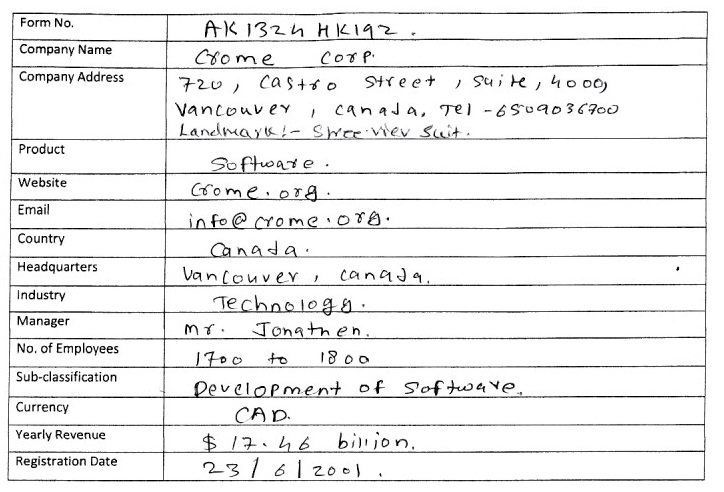 Form No. AK1324HK192.
Company Name Crome Corp.
Company Address 720, Castro Street, Suite, 4000,
Vancouver, Canada, Tel - 6509036700
Landmark:- Shree View Suit.
Product Software.
Website Crome.org.
Email info@crome.org.
Country Canada.
Headquarters Vancouver, Canada.
Industry Technology.
Manager Mr. Jonathen.
No. of Employees 1700 to 1800
Sub-classification Development of Software.
Currency CAD.
Yearly Revenue $ 17.46 billion.
Registration Date 23/6/2001.